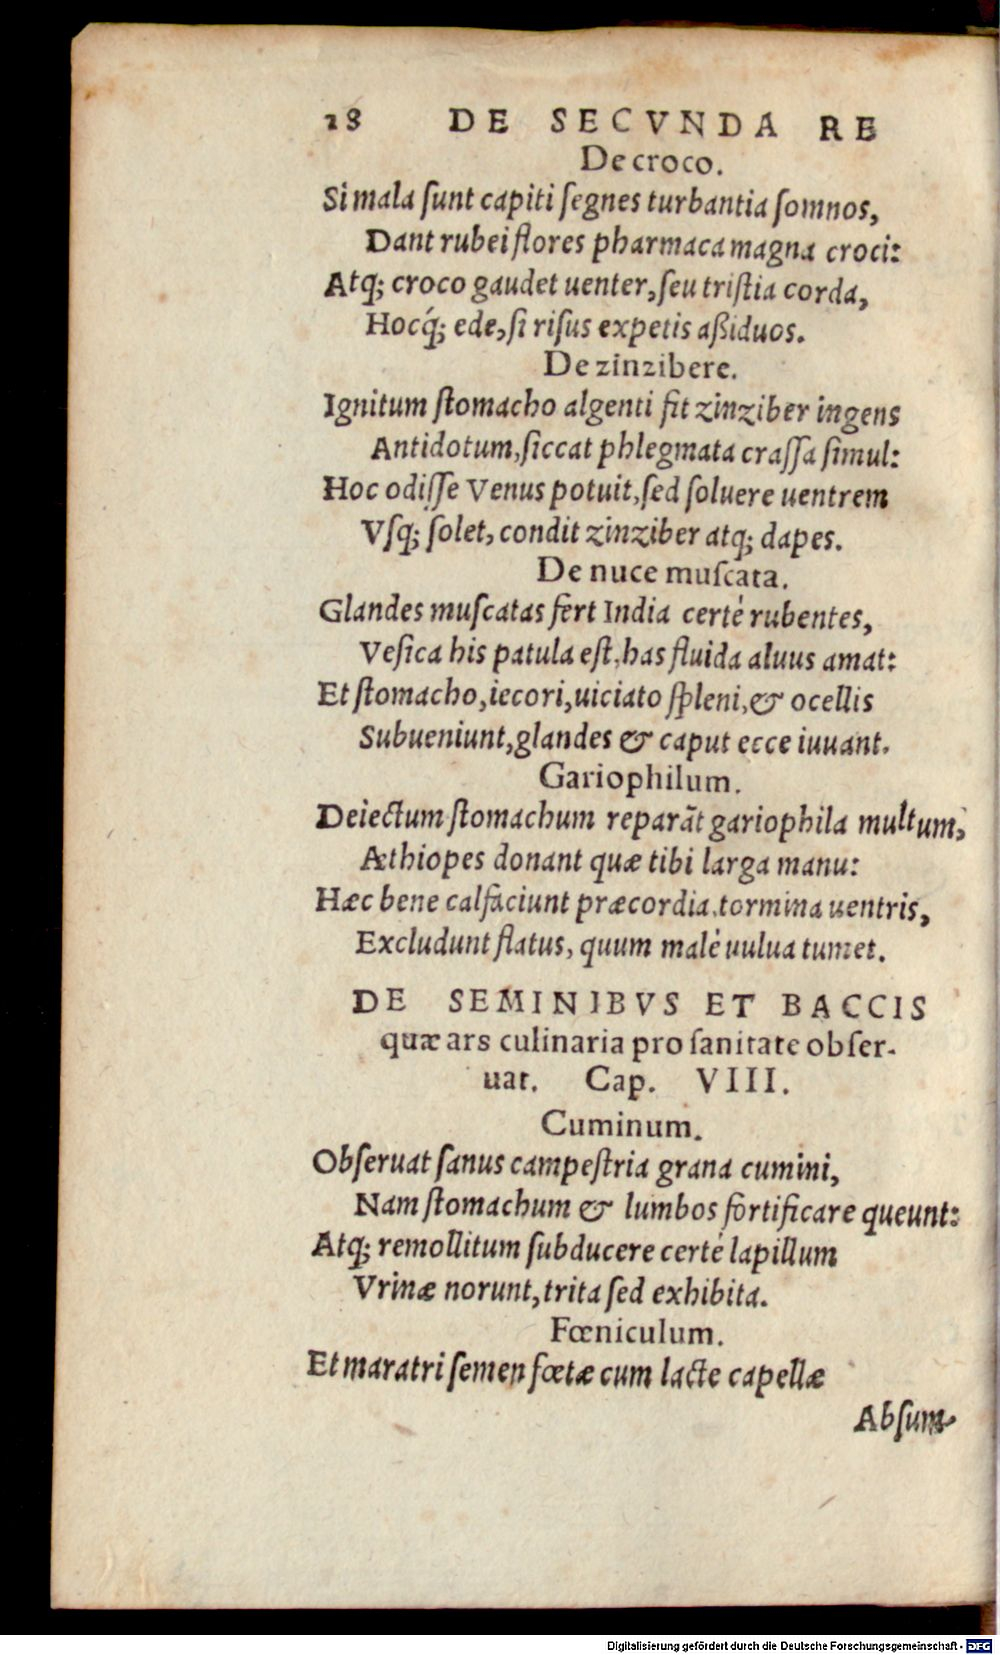 18 DE SECVNDA RE
De croco.
Si mala ſunt capiti ſegnes turbantia ſomnos,
Dant rubei flores pharmaca magna croci:
Atq; croco gaudet uenter, ſeu triſtia corda,
Hocq́; ede, ſi riſus expetis aßiduos.
De zinzibere.
Ignitum ſtomacho algenti fit zinziber ingens
Antidotum, ſiccat phlegmata craſſa ſimul:
Hoc odiſſe Venus potuit, ſed ſoluere uentrem
Vſq; ſolet, condit zinziber atq; dapes.
De nuce muſcata.
Glandes muſcatas fert India certé rubentes,
Veſica his patula eſt, has fluida aluus amat:
Et ſtomacho, iecori, uiciato ſpleni, & ocellis
Subueniunt, glandes & caput ecce iuuant.
Gariophilum.
Deiectum ſtomachum reparāt gariophila multum,
Æthiopes donant quæ tibi larga manu:
Hæc bene calfaciunt præcordia, tormina uentris,
Excludunt flatus, quum malé uulua tumet.
DE SEMINIBVS ET BACCIS
quæ ars culinaria pro ſanitate obſer-
uat. Cap. VIII.
Cuminum.
Obſeruat ſanus campeſtria grana cumini,
Nam ſtomachum & lumbos fortificare queunt:
Atq; remollitum ſubducere certé lapillum
Vrinæ norunt, trita ſed exhibita.
Fœniculum.
Et maratri ſemen fœtæ cum lacte capellæ
Abſum-
Digitalisierung gefördert durch die Deutsche Forschungsgemeinschaft - DFG